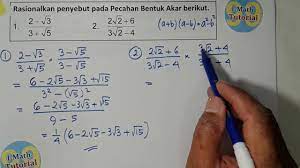 Rasionalkan penyebut pada Pecahan Bentuk Akar berikut.
1. (2 - √3)/(3 + √5)
2. (2√2 + 6)/(3√2 - 4)
(a+b)(a-b) = a² - b²
1 Math Tutorial
① (2 - √3)/(3 + √5) × (3 - √5)/(3 - √5)
= (6 - 2√5 - 3√3 + √15)/(3² - √5²)
= (6 - 2√5 - 3√3 + √15)/(9 - 5)
= 1/4 (6 - 2√5 - 3√3 + √15)
② (2√2 + 6)/(3√2 - 4) × (3√2 + 4)/
=
Math Tutorial